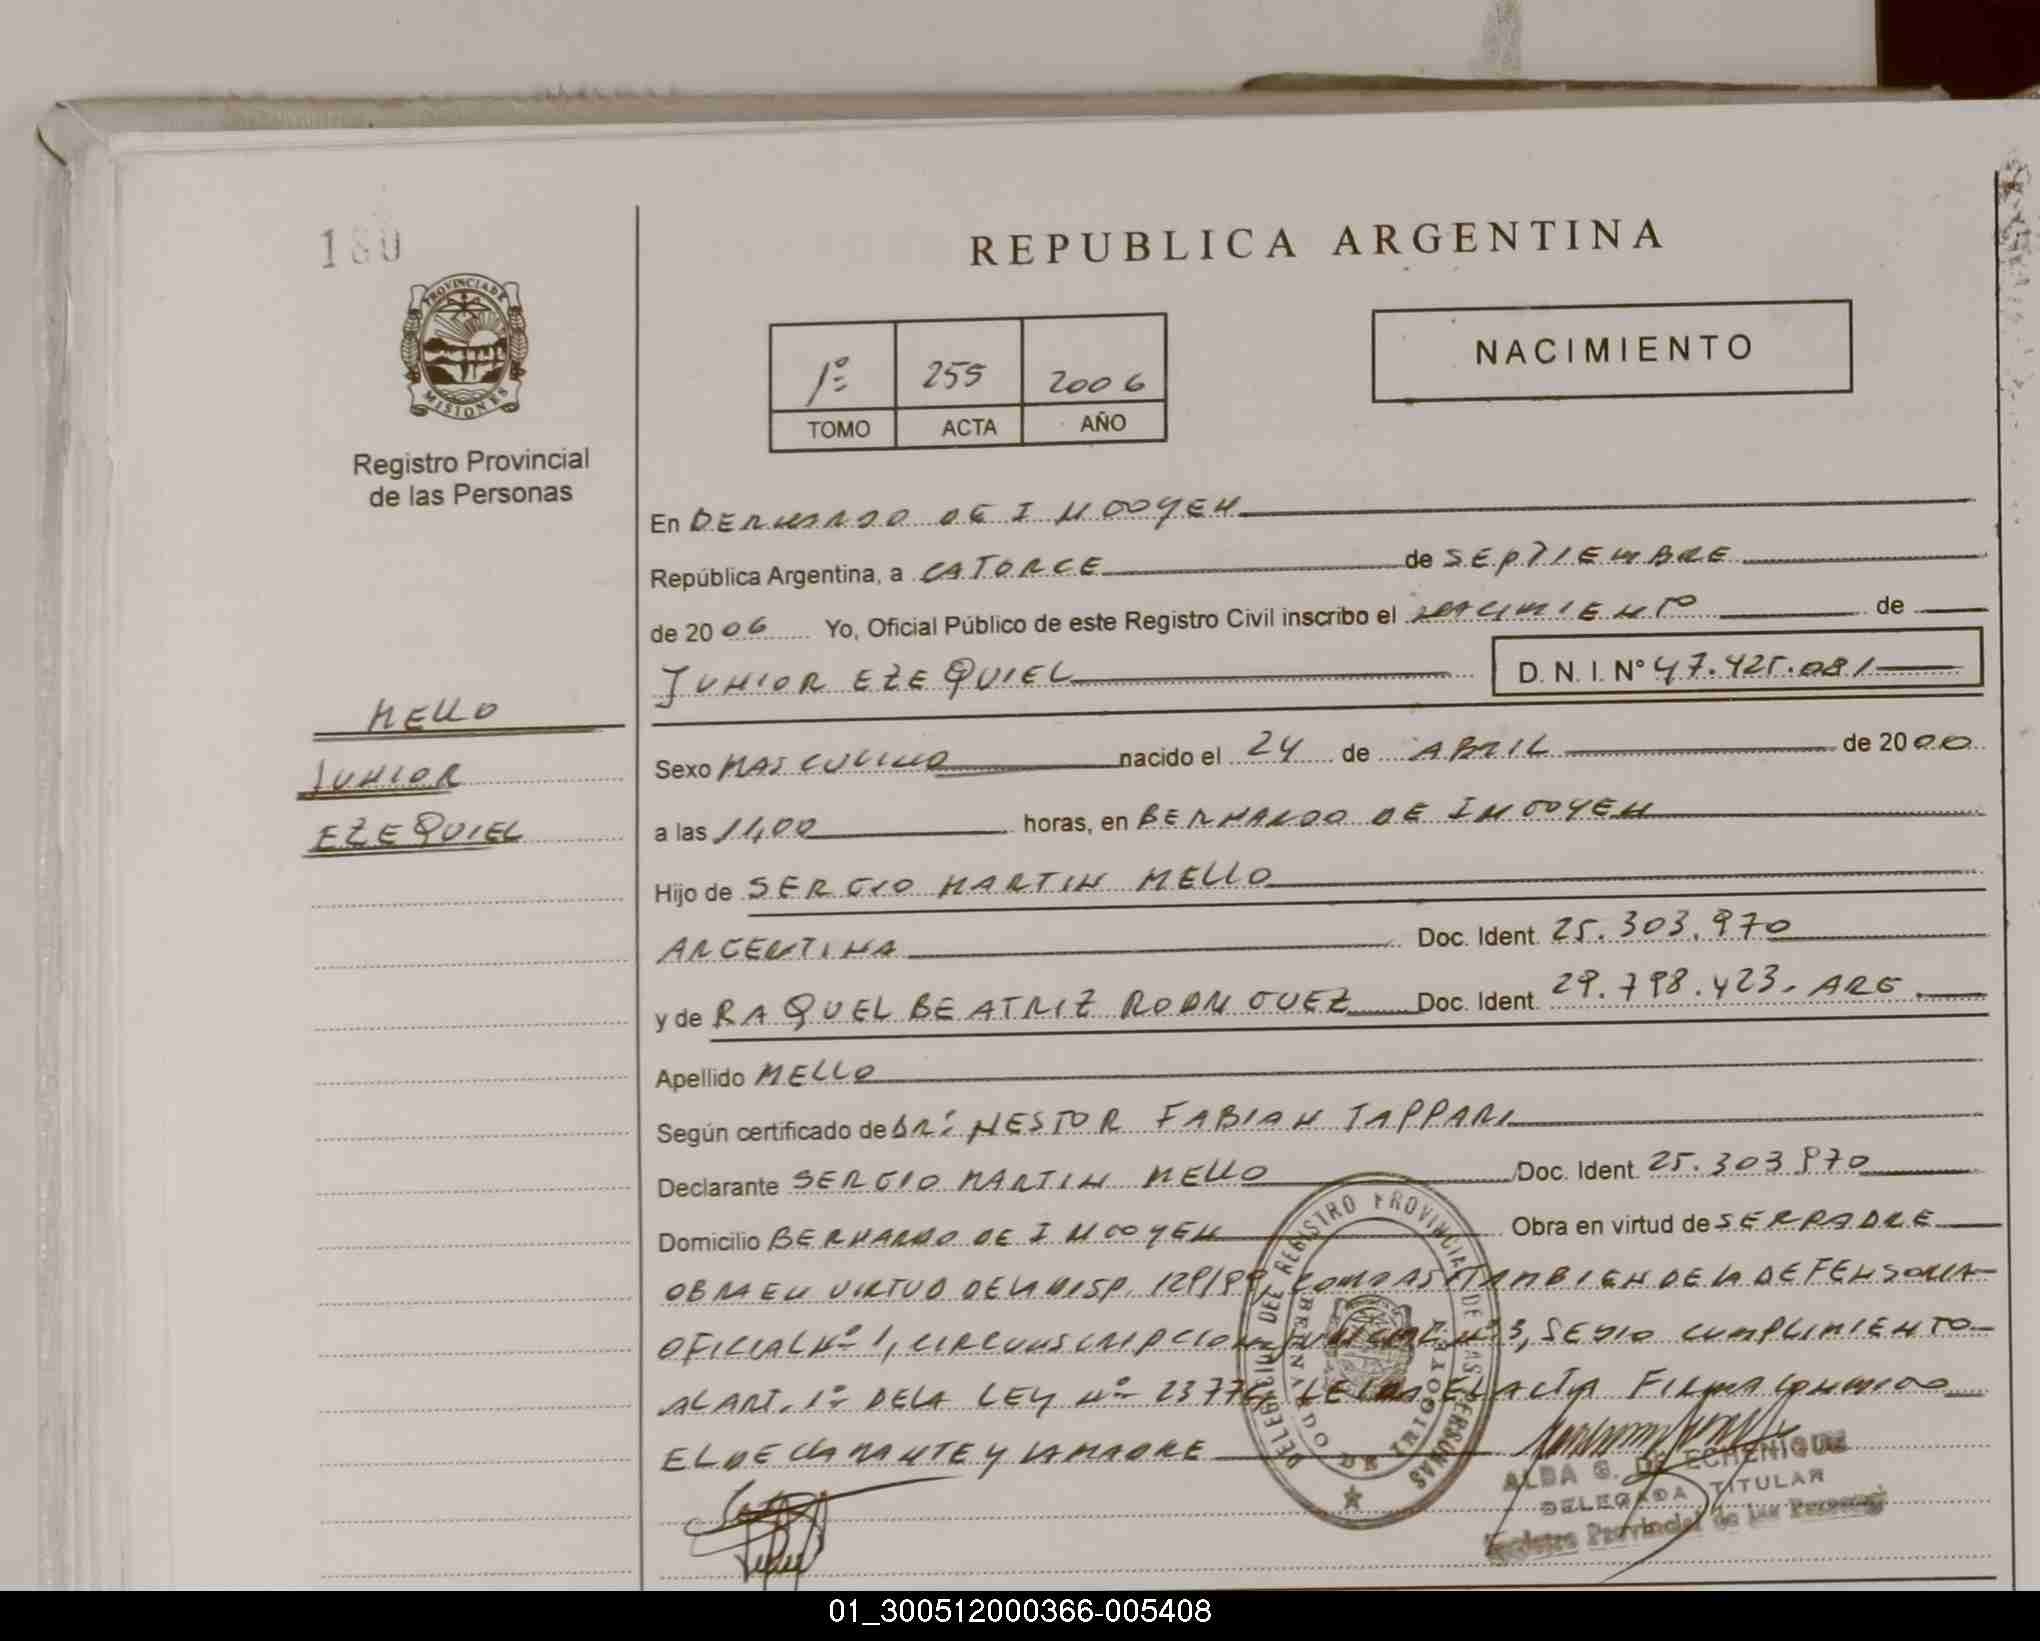 180
REPUBLICA ARGENTINA
PROVINCIA DE
MISIONES
Registro Provincial
de las Personas
1º 255 2006
TOMO ACTA AÑO
NACIMIENTO
En BERNARDO DE IRIGOYEN
República Argentina, a CATORCE de SEPTIEMBRE
de 2006 Yo, Oficial Público de este Registro Civil inscribo el NACIMIENTO de
JUNIOR EZEQUIEL D. N. I. Nº 47.425.081
MELLO
JUNIOR
EZEQUIEL
Sexo MASCULINO nacido el 24 de ABRIL de 2000
a las 11,00 horas, en BERNARDO DE IRIGOYEN
Hijo de SERGIO MARTIN MELLO
ARGENTINA Doc. Ident. 25.303.970
y de RAQUEL BEATRIZ RODRIGUEZ Doc. Ident. 29.798.423. ARG.
Apellido MELLO
Según certificado de DR: NESTOR FABIAN TAPPARI
Declarante SERGIO MARTIN MELLO Doc. Ident. 25.303.970
Domicilio BERNARDO DE IRIGOYEN Obra en virtud de SER PADRE
OBRA EN VIRTUD DE LA DISP. 129/99, COMO ASI TAMBIEN DE LA DEFENSORIA
OFICIAL Nº 1, CIRCUNSCRIPCION JUDICIAL Nº 3, SE DIO CUMPLIMIENTO
AL ART. 1º DE LA LEY Nº 23776, LEIDA EL ACTA FIRMA CONMIGO
EL DECLARANTE Y LA MADRE
DELEGACION DEL REGISTRO PROVINCIAL DE LAS PERSONAS
BERNARDO DE IRIGOYEN
ALBA G. DE ECHENIQUE
DELEGADA TITULAR
Registro Provincial de las Personas
01_300512000366-005408